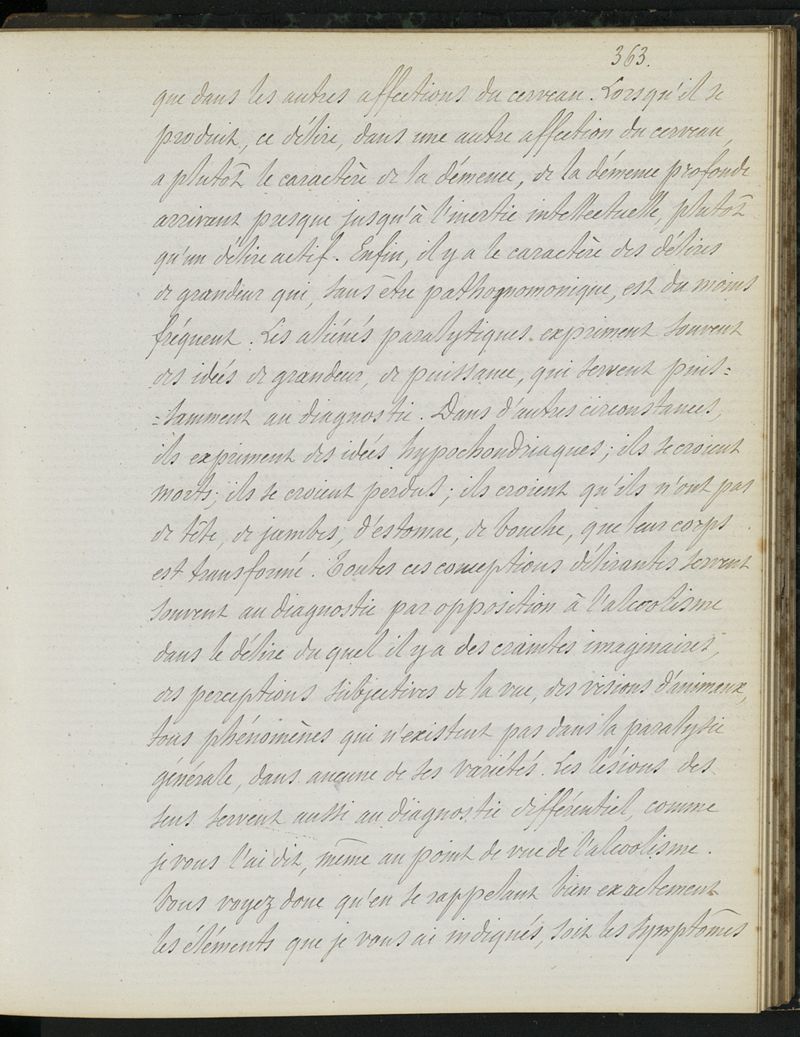 363.
que dans les autres affections du cerveau. Lorsqu'il se
produit, ce délire, dans une autre affection du cerveau,
a plutôt le caractère de la démence, de la démence profonde
arrivant presque jusqu'à l'inertie intellectuelle, plutôt
qu'un délire actif. Enfin, il y a le caractère des délires
de grandeur qui, sans être pathognomonique, est du moins
fréquent. Les aliénés paralytiques expriment souvent
des idées de grandeur, de puissance, qui servent puis=
=samment au diagnostic. Dans d'autres circonstances,
ils expriment des idées hypochondriaques; ils se croient
morts; ils se croient perdus; ils croient qu'ils n'ont pas
de tête, de jambes, d'estomac, de bouche, que leur corps
est transformé. Toutes ces conceptions délirantes servent
souvent au diagnostic par opposition à l'alcoolisme
dans le délire duquel il y a des craintes imaginaires,
des perceptions subjectives de la vue, des visions d'animaux,
tous phénomènes qui n'existent pas dans la paralysie
générale, dans aucune de ses variétés. Les lésions des
sens servent aussi au diagnostic différentiel, comme
je vous l'ai dit, même au point de vue de l'alcoolisme.
Vous voyez donc qu'en se rappelant bien exactement
les éléments que je vous ai indiqués, soit les symptômes